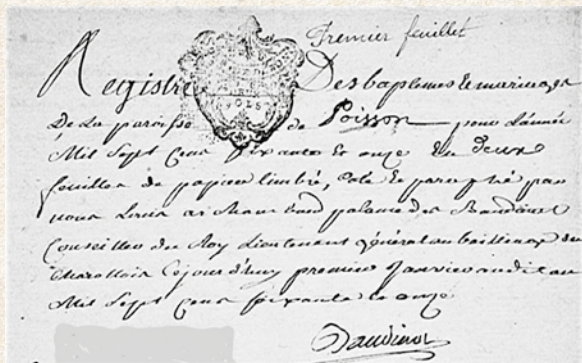 Premier feuillet
Registre Des baptemes et mariages
De la paroisse de Poisson pour l'année
Mil Sept Cens soixante et onze En deux
feuilles de papier timbré, Coté et paraphé par
nous Louis palamede Baudinot
Conseiller du Roy Lieutenant général au bailliage du
Charollais Cejourd'huy premier Janvier audit an
Mil Sept Cens soixante et onze
Baudinot